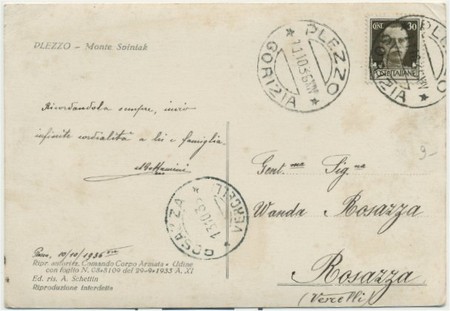 PLEZZO - Monte Svinjak
PLEZZO
GORIZIA
11.10.36
CENT. 30
POSTE ITALIANE
PLEZZO
GORIZIA
Ricordandola sempre, invio
infinite cordialità a lei e famiglia
Gent.ma Sig.na
Wanda Rosazza
Rosazza
(Vercelli)
ROSAZZA
VERCELLI
13.10.3
10/10/1936
Ripr. autorizz. Comando Corpo Armata - Udine
con foglio N. 08-5109 del 29-9-1933 A. XI
Ed. ris. A. Schettin
Riproduzione interdetta